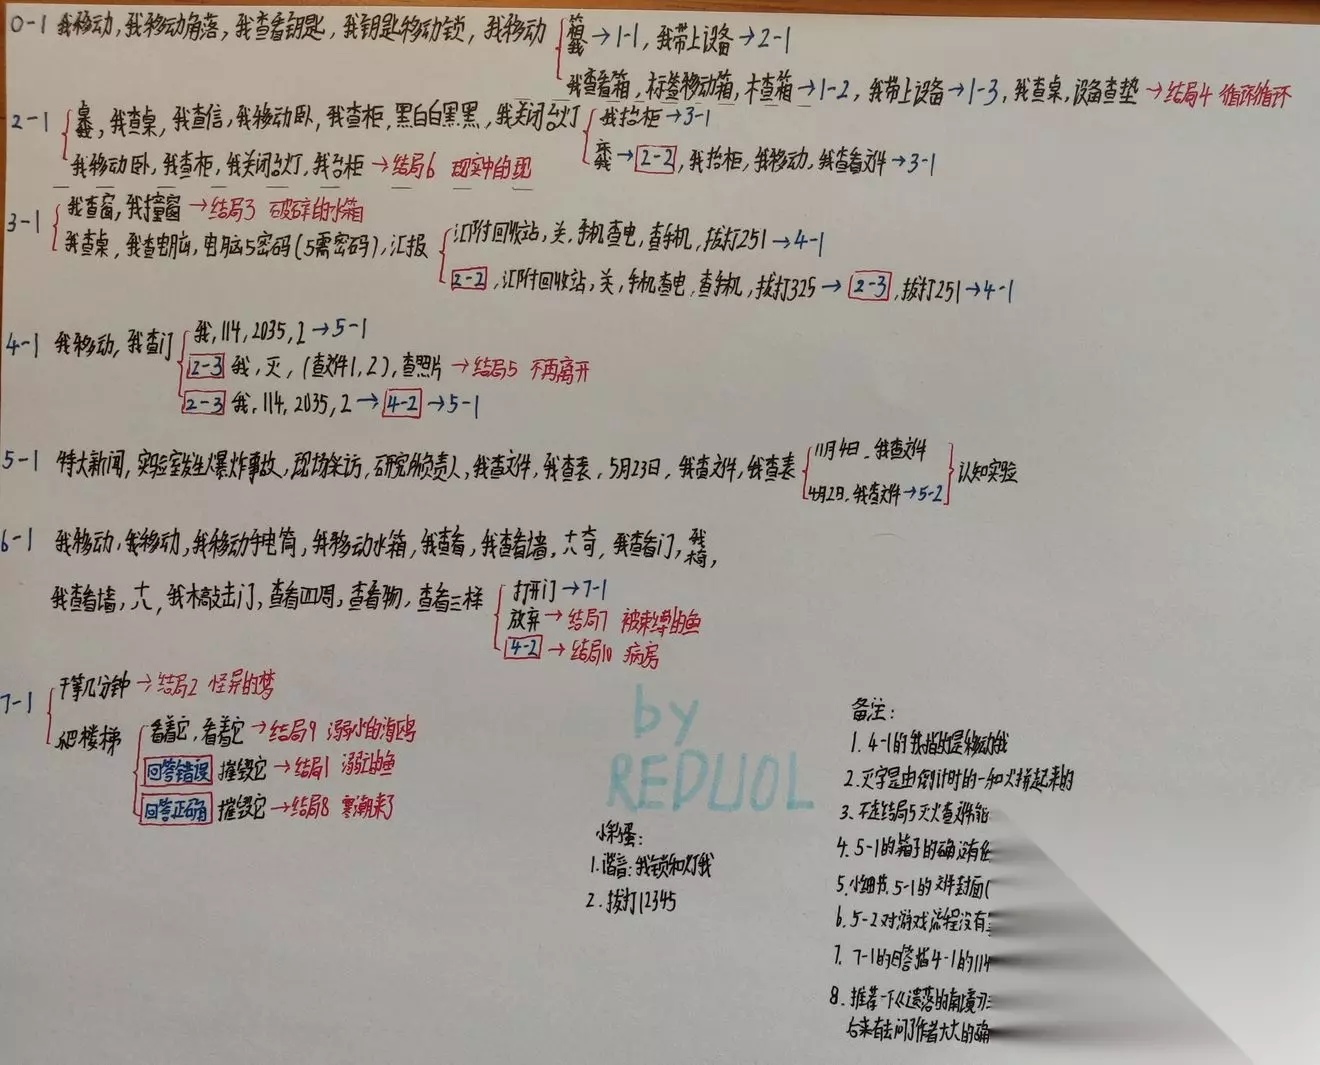 0-1 我移动,我移动角落,我查看钥匙,我钥匙移动锁,我移动
箱我→1-1,我带上设备→2-1
我查看箱,标签移动箱,木查箱→1-2,我带上设备→1-3,我查桌,设备查垫→结局4 循环循环
2-1
我查桌,我查信,我移动卧,我查柜,黑白白黑黑,我关闭台灯
我抬柜→3-1
→2-2,我抬柜,我移动,我查看文件→3-1
我移动卧,我查柜,我关闭台灯,我台柜→结局6 现实中的现
3-1
我查窗,我撞窗→结局3 破碎的水箱
我查桌,我查电脑,电脑5密码(5需密码),汇报
汇附回收站,关,手机查电,查手机,拨打251→4-1
2-2,汇附回收站,关,手机查电,查手机,拨打325→2-3,拨打251→4-1
4-1 我移动,我查门
我,114,2035,2→5-1
2-3 我,灭,(查文件1,2),查照片→结局5 不再离开
2-3 我,114,2035,2→4-2→5-1
5-1 特大新闻,实验室发生爆炸事故,现场采访,研究所负责人,我查文件,我查表,5月23日,我查文件,我查表
11月4日,我查文件
4月2日,我查文件→5-2
认知实验
6-1 我移动,我移动,我移动手电筒,我移动水箱,我查看,我查看墙,六奇,我查看门,我椅,
我查看墙,六,我木敲击门,查看四周,查看物,查看三样
打开门→7-1
放弃→结局7 被束缚的鱼
4-2→结局10 病房
7-1
干等几分钟→结局2 怪异的梦
爬楼梯
看着它,看着它→结局9 溺水的海鸥
回答错误 摧毁它→结局1 溺亡的鱼
回答正确 摧毁它→结局8 寒潮来了
by
REDUOL
小彩蛋:
1.谐音:我锁和灯我
2.拨打12345
备注:
1.4-1的我指的是移动我
2.灭字是由倒计时的一和火拼起来的
3.不走结局5灭火查文件
4.5-1的箱子的确没有
5.小细节,5-1的文件封面
6.5-2对游戏流程没有
7.7-1的回答指4-1的114
8.推荐一下《遗落的南境
后来有去问了作者大大的确